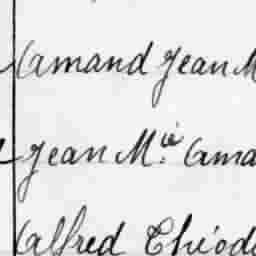 Amand Jean M
Jean M.ie Ama
Alfred Théod